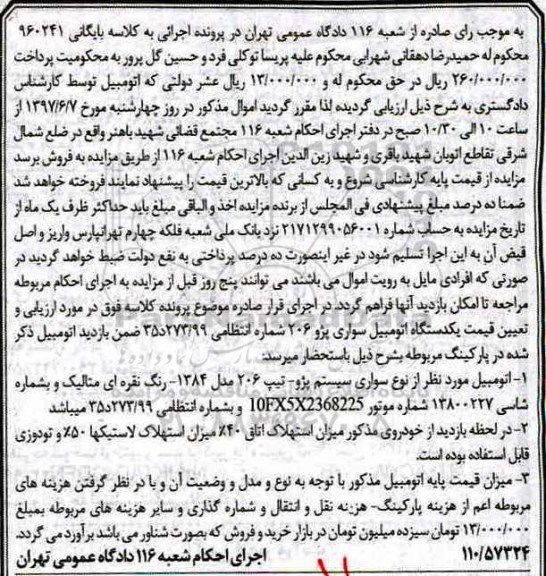 به موجب رای صادره از شعبه ۱۱۶ دادگاه عمومی تهران در پرونده اجرائی به کلاسه بایگانی ۹۶۰۲۴۱
محکوم له حمیدرضا دهقانی شهرابی محکوم علیه پریسا توکلی فرد و حسین گل پرور به محکومیت پرداخت
۲۶۰/۰۰۰/۰۰۰ ریال در حق محکوم له و ۱۳/۰۰۰/۰۰۰ ریال عشر دولتی که اتومبیل توسط کارشناس
دادگستری به شرح ذیل ارزیابی گردیده لذا مقرر گردید اموال مذکور در روز چهارشنبه مورخ ۱۳۹۷/۶/۷ از
ساعت ۱۰ الی ۱۰/۳۰ صبح در دفتر اجرای احکام شعبه ۱۱۶ مجتمع قضائی شهید باهنر واقع در ضلع شمال
شرقی تقاطع اتوبان شهید باقری و شهید زین الدین اجرای احکام شعبه ۱۱۶ از طریق مزایده به فروش برسد
مزایده از قیمت پایه کارشناسی شروع و به کسانی که بالاترین قیمت را پیشنهاد نمایند فروخته خواهد شد
ضمنا ده درصد مبلغ پیشنهادی فی المجلس از برنده مزایده اخذ و الباقی مبلغ باید حداکثر ظرف یک ماه از
تاریخ مزایده به حساب شماره ۲۱۷۱۲۹۹۰۵۶۰۰۱ نزد بانک ملی شعبه فلکه چهارم تهرانپارس واریز و اصل
قبض آن به این اجرا تسلیم شود در غیر اینصورت ده درصد پرداختی به نفع دولت ضبط خواهد گردید در
صورتی که افرادی مایل به رویت اموال می باشند می توانند پنج روز قبل از مزایده به اجرای احکام مربوطه
مراجعه تا امکان بازدید آنها فراهم گردد. در اجرای قرار صادره موضوع پرونده کلاسه فوق در مورد ارزیابی و
تعیین قیمت یکدستگاه اتومبیل سواری پژو ۲۰۶ شماره انتظامی ۳۵د۲۷۳/۹۹ ضمن بازدید اتومبیل ذکر
شده در پارکینگ مربوطه بشرح ذیل باستحضار میرسد.
۱- اتومبیل مورد نظر از نوع سواری سیستم پژو- تیپ ۲۰۶ مدل ۱۳۸۴- رنگ نقره ای متالیک و بشماره
شاسی ۱۳۸۰۰۲۲۷ شماره موتور 10FX5X2368225 و بشماره انتظامی ۳۵د۲۷۳/۹۹ میباشد
۲- در لحظه بازدید از خودروی مذکور میزان استهلاک اتاق ۴۰٪ میزان استهلاک لاستیکها ۵۰٪ و تودوزی
قابل استفاده بوده است.
۳- میزان قیمت پایه اتومبیل مذکور با توجه به نوع و مدل و وضعیت آن و با در نظر گرفتن هزینه های
مربوطه اعم از هزینه پارکینگ- هزینه نقل و انتقال و شماره گذاری و سایر هزینه های مربوطه بمبلغ
۱۳/۰۰۰/۰۰۰ تومان سیزده میلیون تومان در بازار خرید و فروش که بصورت شناور می باشد برآورد می گردد.
۱۱۰/۵۷۳۲۴ اجرای احکام شعبه ۱۱۶ دادگاه عمومی تهران